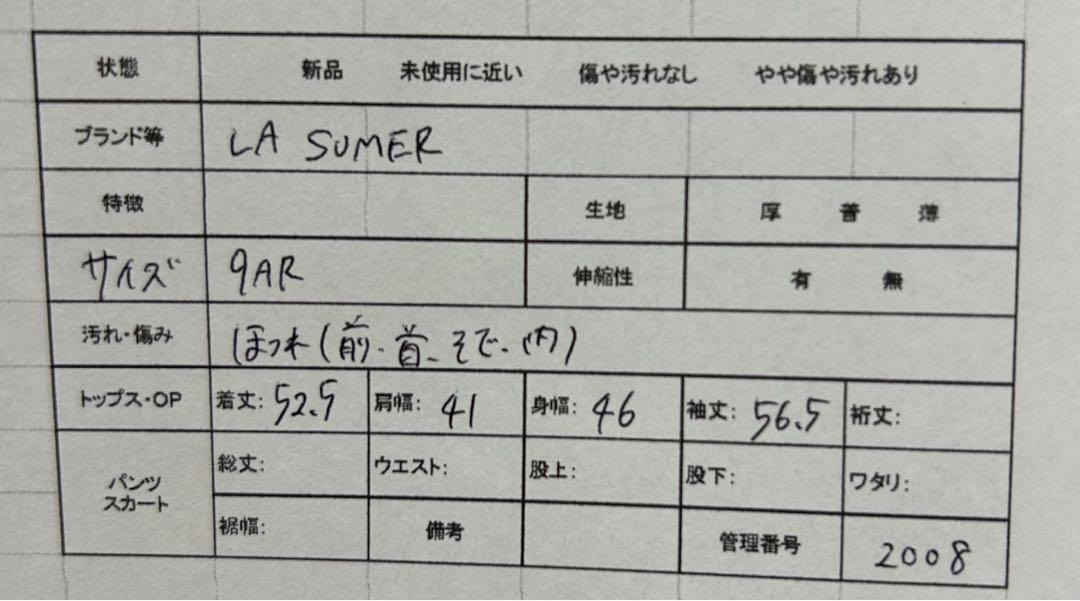 状態 新品 未使用に近い 傷や汚れなし やや傷や汚れあり
ブランド等 LA SUMER
特徴 生地 厚 普 薄
サイズ 9AR 伸縮性 有 無
汚れ・傷み ほつれ(前.首.そで.内)
トップス・OP 着丈: 52.5 肩幅: 41 身幅: 46 袖丈: 56.5 裄丈:
パンツ
スカート
総丈: ウエスト: 股上: 股下: ワタリ:
裾幅: 備考 管理番号 2008